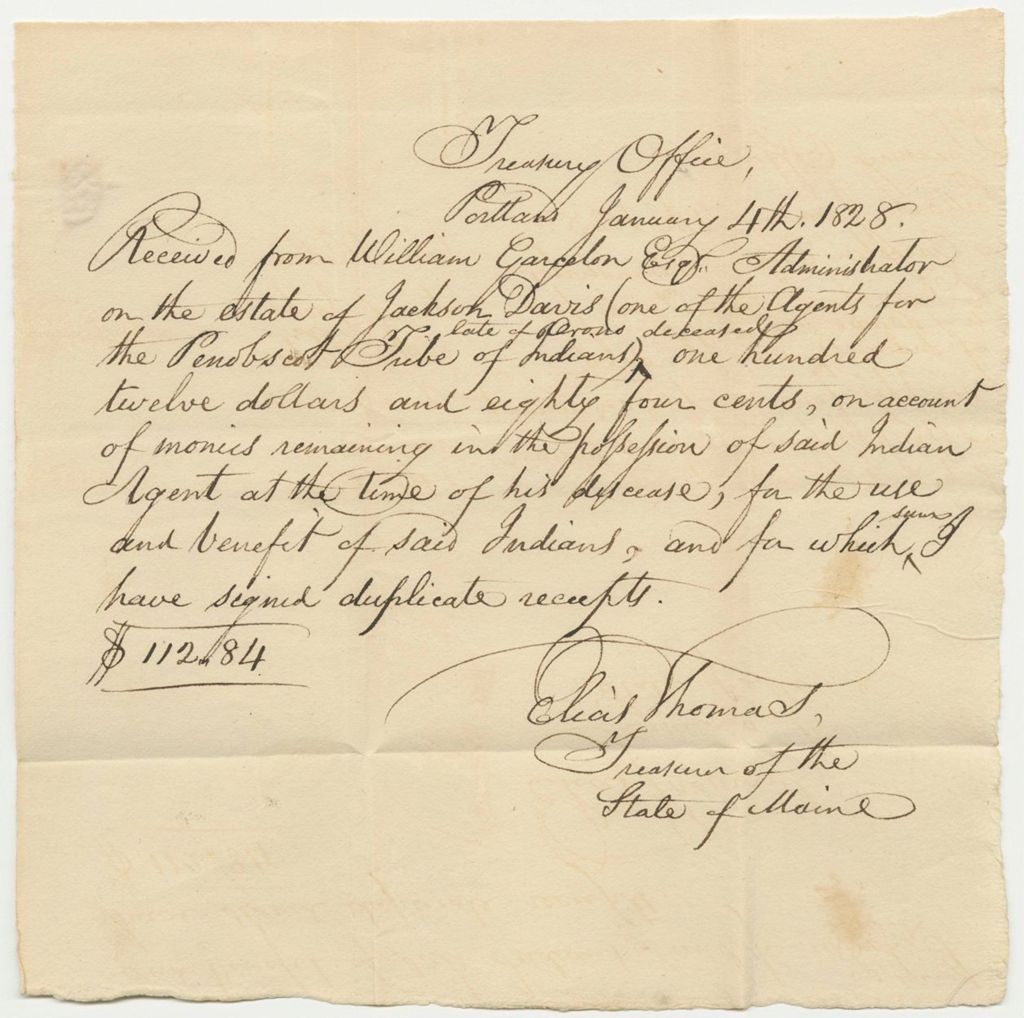 Treasury Office,
Portland January 4th. 1828.
Received from William Garcelon Esqr. Administrator
on the estate of Jackson Davis (one of the Agents for
late of Orono deceased
the Penobscot Tribe of Indians) ‸ one hundred
twelve dollars and eighty four cents, on account
of monies remaining in the possession of said Indian
Agent at the time of his decease, for the use
sum
and benefit of said Indians, and for which ‸ I
have signed duplicate receipts.
$112.84
Elias Thomas,
Treasurer of the
State of Maine